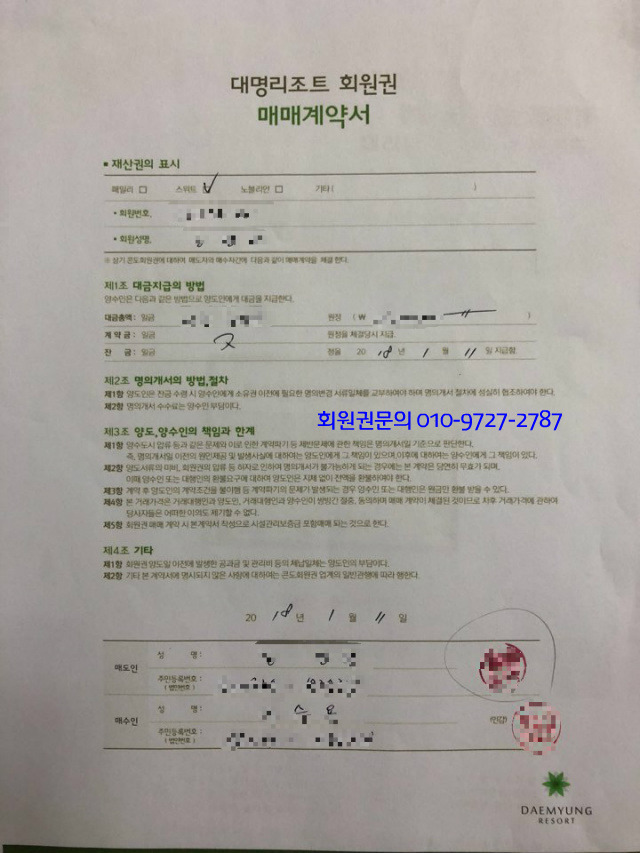 대명리조트 회원권
매매계약서
▪ 재산권의 표시
패밀리 □ 스위트 □ ✓ 노블리안 □ 기타 ( )
• 회원번호,
• 회원성명,
※ 상기 콘도회원권에 대하여 매도자와 매수자간에 다음과 같이 매매계약을 체결 한다.
제1조 대금지급의 방법
양수인은 다음과 같은 방법으로 양도인에게 대금을 지급한다.
대금총액 : 일금 원정 ( ₩
계 약 금 : 일금 원정을 체결당시 지급.
잔 금 : 일금 정을 2018년 1월 11일 지급함.
제2조 명의개서의 방법,절차
제1항 양도인은 잔금 수령 시 양수인에게 소유권 이전에 필요한 명의변경 서류일체를 교부하여야 하며 명의개서 절차에 성실히 협조하여야 한다.
제2항 명의개서 수수료는 양수인 부담이다.
회원권문의 010-9727-2787
제3조 양도,양수인의 책임과 한계
제1항 양수도시 압류 등과 같은 문제와 이로 인한 계약파기 등 제반문제에 관한 책임은 명의개서일 기준으로 판단한다.
즉, 명의개서일 이전의 원인제공 및 발생사실에 대하여는 양도인에게 그 책임이 있으며,이후에 대하여는 양수인에게 그 책임이 있다.
제2항 양도서류의 미비, 회원권의 압류 등 하자로 인하여 명의개서가 불가능하게 되는 경우에는 본 계약은 당연히 무효가 되며,
이때 양수인 또는 대행인의 환불요구에 대하여 양도인은 지체 없이 전액을 환불하여야 한다.
제3항 계약 후 양도인의 계약조건을 불이행 등 계약파기의 문제가 발생되는 경우 양수인 또는 대행인은 원금만 환불 받을 수 있다.
제4항 본 거래가격은 거래대행인과 양도인, 거래대행인과 양수인이 쌍방간 절충, 동의하여 매매 계약이 체결된 것이므로 차후 거래가격에 관하여
당사자들은 어떠한 이의도 제기할 수 없다.
제5항 회원권 매매 계약 시 본계약서 작성으로 시설관리보증금 포함매매 되는 것으로 한다.
제4조 기타
제1항 회원권 양도일 이전에 발생한 공과금 및 관리비 등의 체납일체는 양도인의 부담이다.
제2항 기타 본 계약서에 명시되지 않은 사항에 대하여는 콘도회원권 업계의 일반관행에 따라 행한다.
2018년 1월 11일
매도인 성 명 :
주민등록번호 :
( 법인번호 )
매수인 성 명 :
(인감)
주민등록번호 :
( 법인번호 )
DAEMYUNG
RESORT